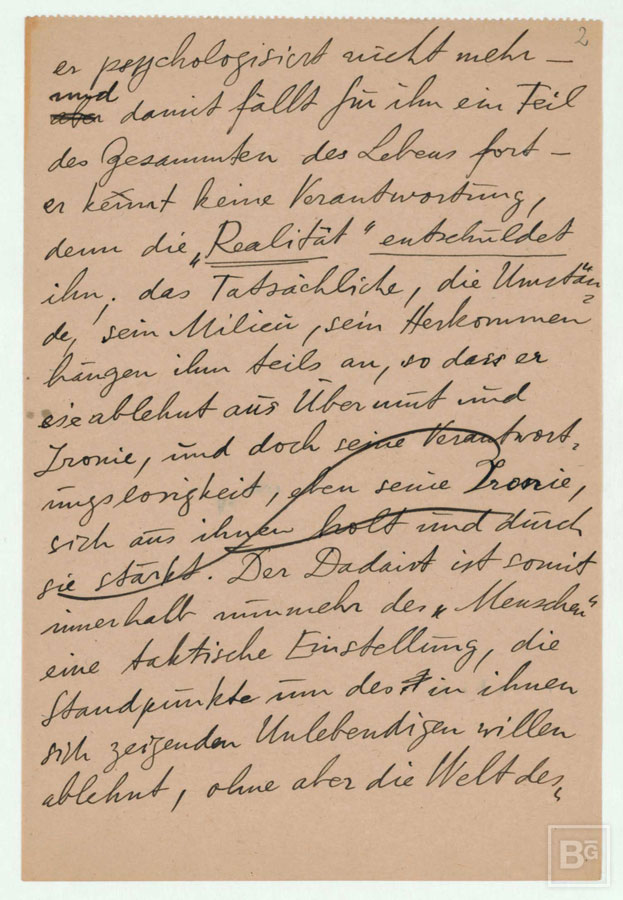 2
er psychologisiert nicht mehr –
und
aber damit fällt für ihn ein Teil
des Gesammten des Lebens fort –
er kennt keine Verantwortung,
denn die „Realität“ entschuldet
ihn; das Tatsächliche, die Umstän=
de, sein Milieu, sein Herkommen
hängen ihm teils an, so dass er
sie ablehnt aus Übermut und
Ironie, und doch seine Verantwort=
ungslosigkeit, eben seine Ironie,
sich aus ihnen holt und durch
sie stärkt. Der Dadaist ist somit
innerhalb nunmehr des „Menschen“
eine taktische Einstellung, die
Standpunkte um des in ihnen
sich zeigenden Unlebendigen willen
ablehnt, ohne aber die Welt des „
BG